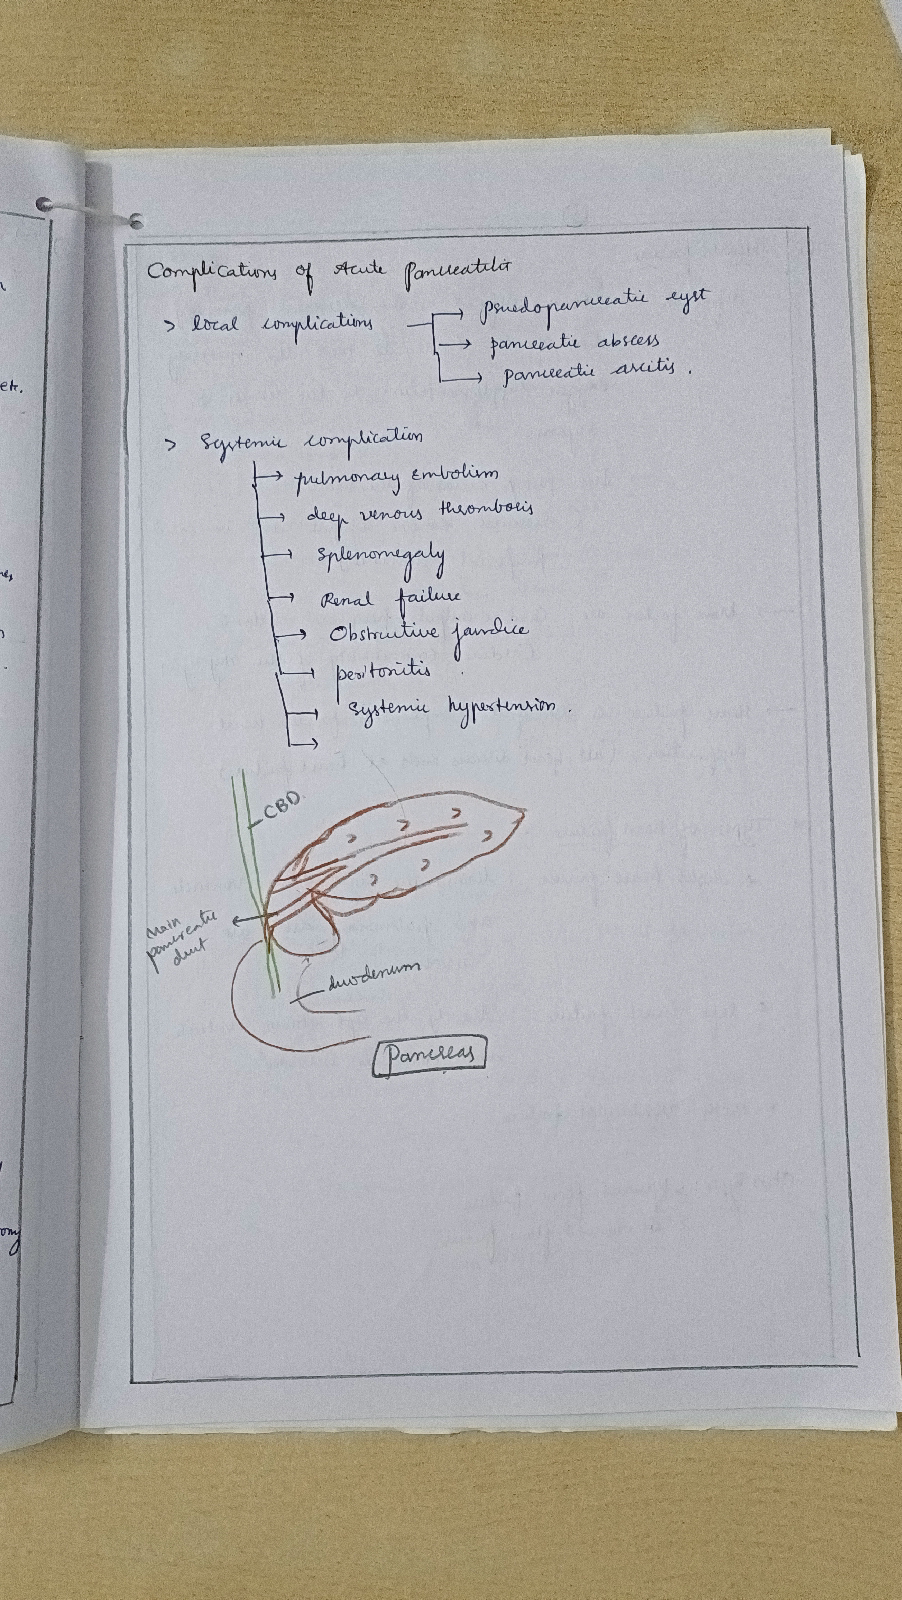 Complications of Acute Pancreatitis
> local complications → psuedopancreatic cyst
→ pancreatic abscess
→ pancreatic ascitis.
> Systemic complication
→ pulmonary Embolism
→ deep venous thrombosis
→ splenomegaly
→ Renal failure
→ Obstructive jaundice
→ peritonitis
→ Systemic hypertension.
CBD.
Main
pancreatic
duct
duodenum
Pancreas
etc.